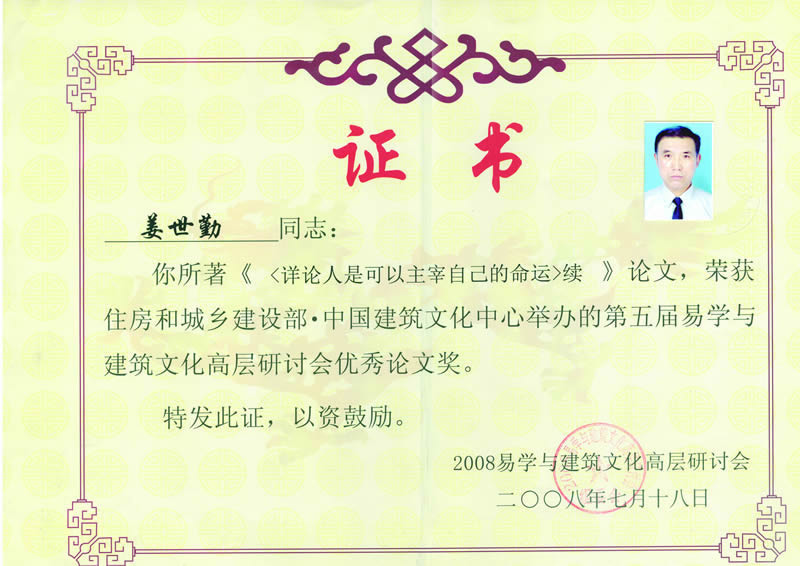 证书
姜世勤 同志：
你所著《 <详论人是可以主宰自己的命运>续 》论文，荣获
住房和城乡建设部·中国建筑文化中心举办的第五届易学与
建筑文化高层研讨会优秀论文奖。
特发此证，以资鼓励。
2008易学与建筑文化高层研讨会
二〇〇八年七月十八日